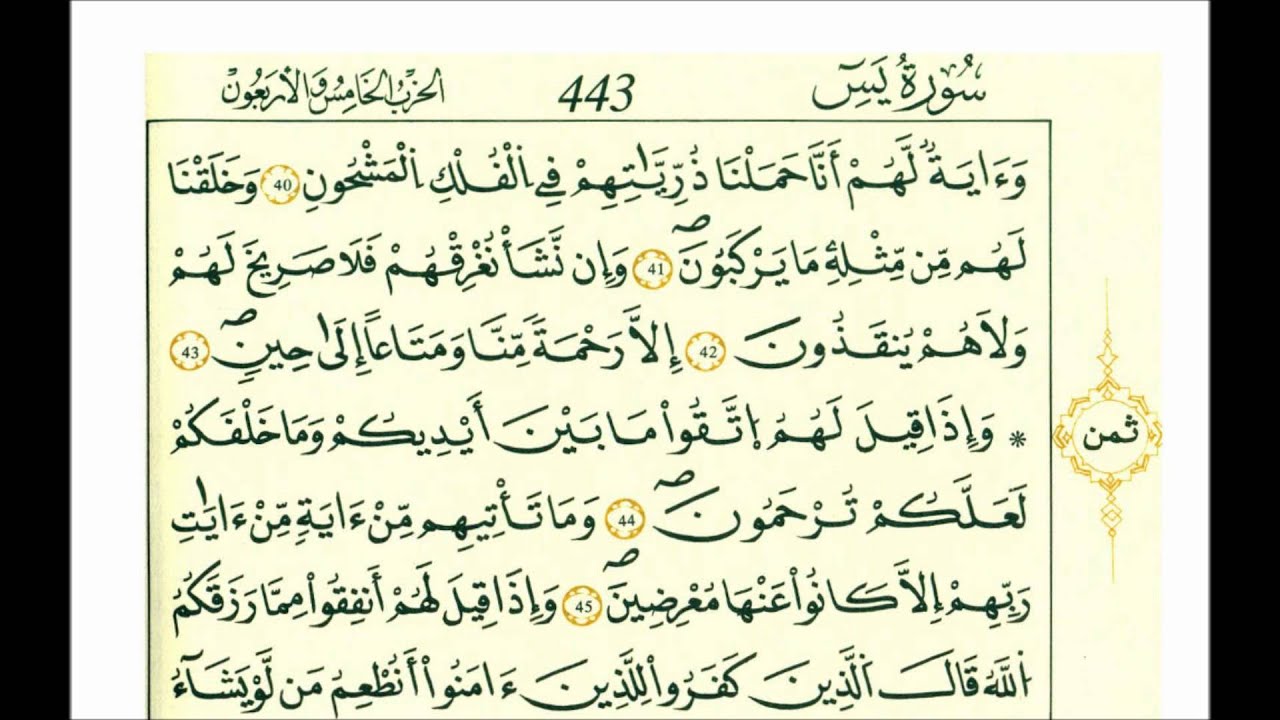 سُورَةُ يَسِٓ 443 الحِزْبُ الخَامِسُ وَالأَرْبَعُونَ
وَءَايَةٌ لَّهُمْ أَنَّا حَمَلْنَا ذُرِّيَّٰتِهِمْ فِے اِ۬لْفُلْكِ اِ۬لْمَشْحُونِ 40 وَخَلَقْنَا
لَهُم مِّن مِّثْلِهِۦ مَا يَرْكَبُونَۖ 41 وَإِن نَّشَأْ نُغْرِقْهُمْ فَلَا صَرِيخَ لَهُمْ
وَلَا هُمْ يُنقَذُونَ 42 إِلَّا رَحْمَةً مِّنَّا وَمَتَاعاً إِلَىٰ حِينٍۖ 43
* وَإِذَا قِيلَ لَهُمُ اُ۪تَّقُواْ مَا بَيْنَ أَيْدِيكُمْ وَمَا خَلْفَكُمْ
ثمن
لَعَلَّكُمْ تُرْحَمُونَۖ 44 وَمَا تَأْتِيهِم مِّنْ ءَايَةٍ مِّنْ ءَايَٰتِ
رَبِّهِمْ إِلَّا كَانُواْ عَنْهَا مُعْرِضِينَۖ 45 وَإِذَا قِيلَ لَهُمْ أَنفِقُواْ مِمَّا رَزَقَكُمُ
اُ۬للَّهُ قَالَ اَ۬لذِينَ كَفَرُواْ لِلذِينَ ءَامَنُواْ أَنُطْعِمُ مَن لَّوْ يَشَآءُ